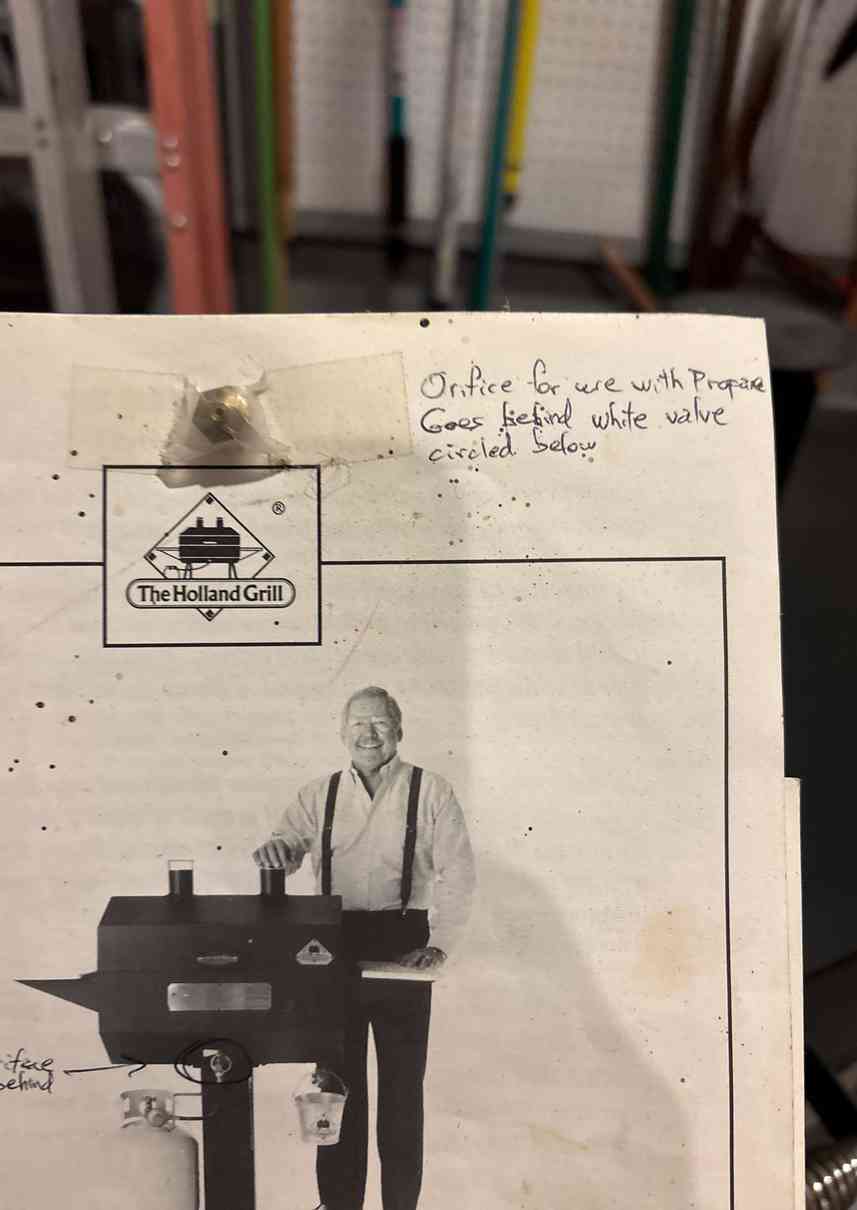 Orifice for use with Propane
Goes behind white valve
circled below
®
The Holland Grill
behind